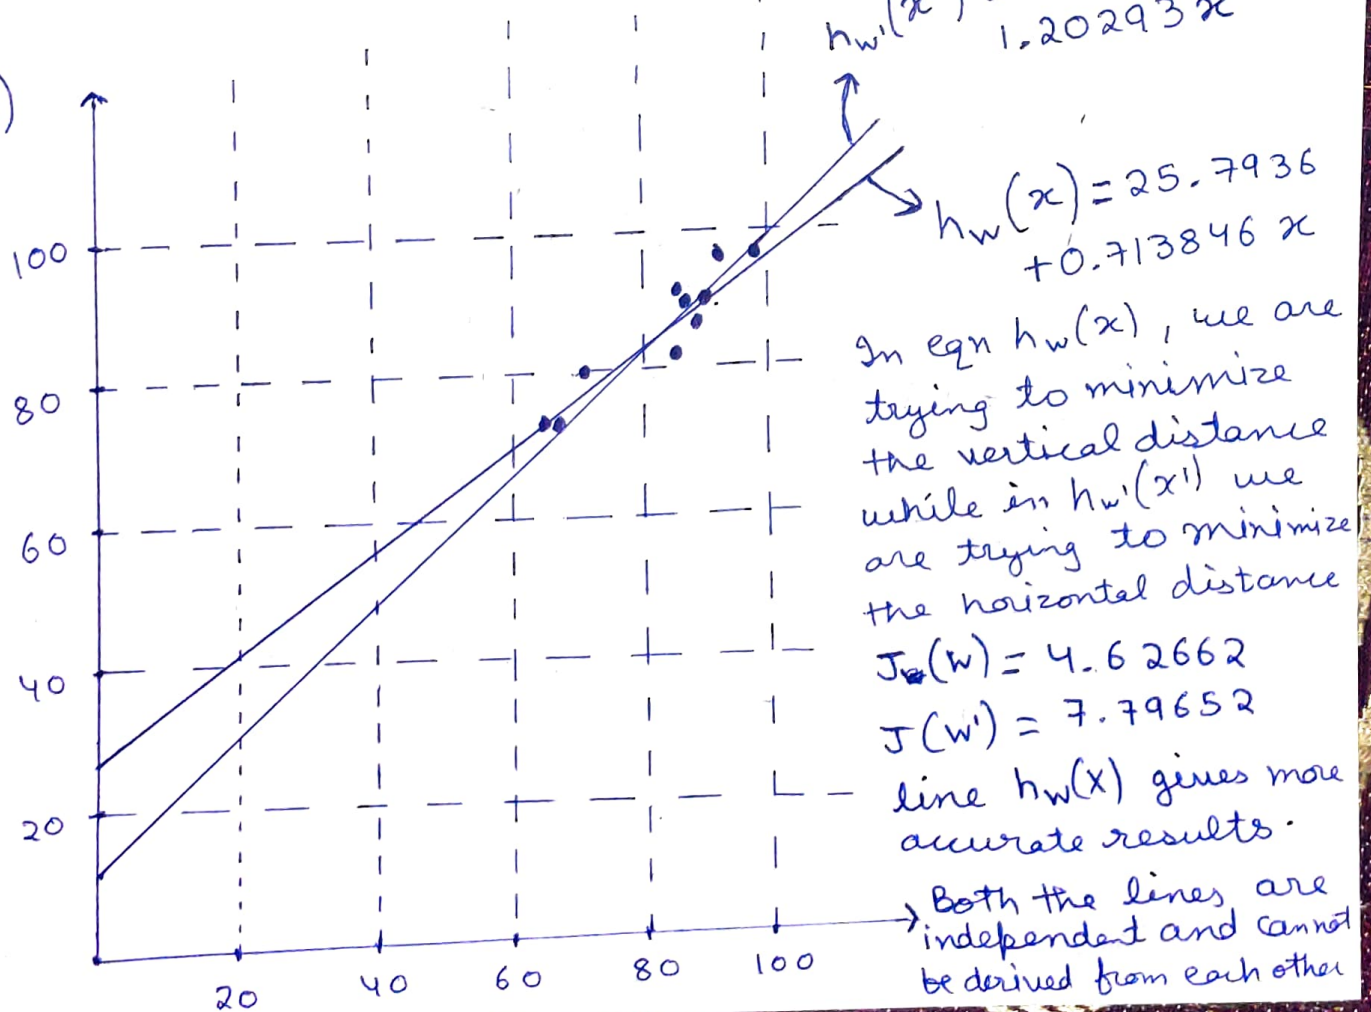 )
hw'(x'
1.20293x
hw(x) = 25.7936
+0.713846 x
100
80
60
40
20
20 40 60 80 100
In eqn hw(x), we are
trying to minimize
the vertical distance
while in hw'(x') we
are trying to minimize
the horizontal distance
J(w) = 4.62662
J(w') = 7.79652
line hw(x) gives more
accurate results.
Both the lines are
independent and cannot
be derived from each other